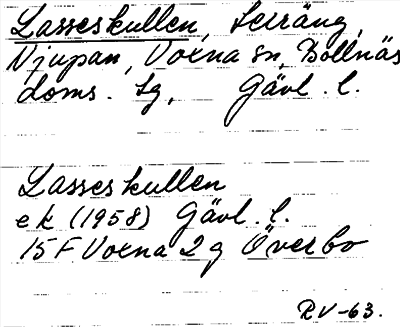 Lasseskullen, Serräng,
Njupan, Voxna sn, Bollnäs
doms. sg, Gävl. l.
Lasseskullen
ek (1958) Gävl. l.
15 F Voxna 2 g Överbo
RV-63.